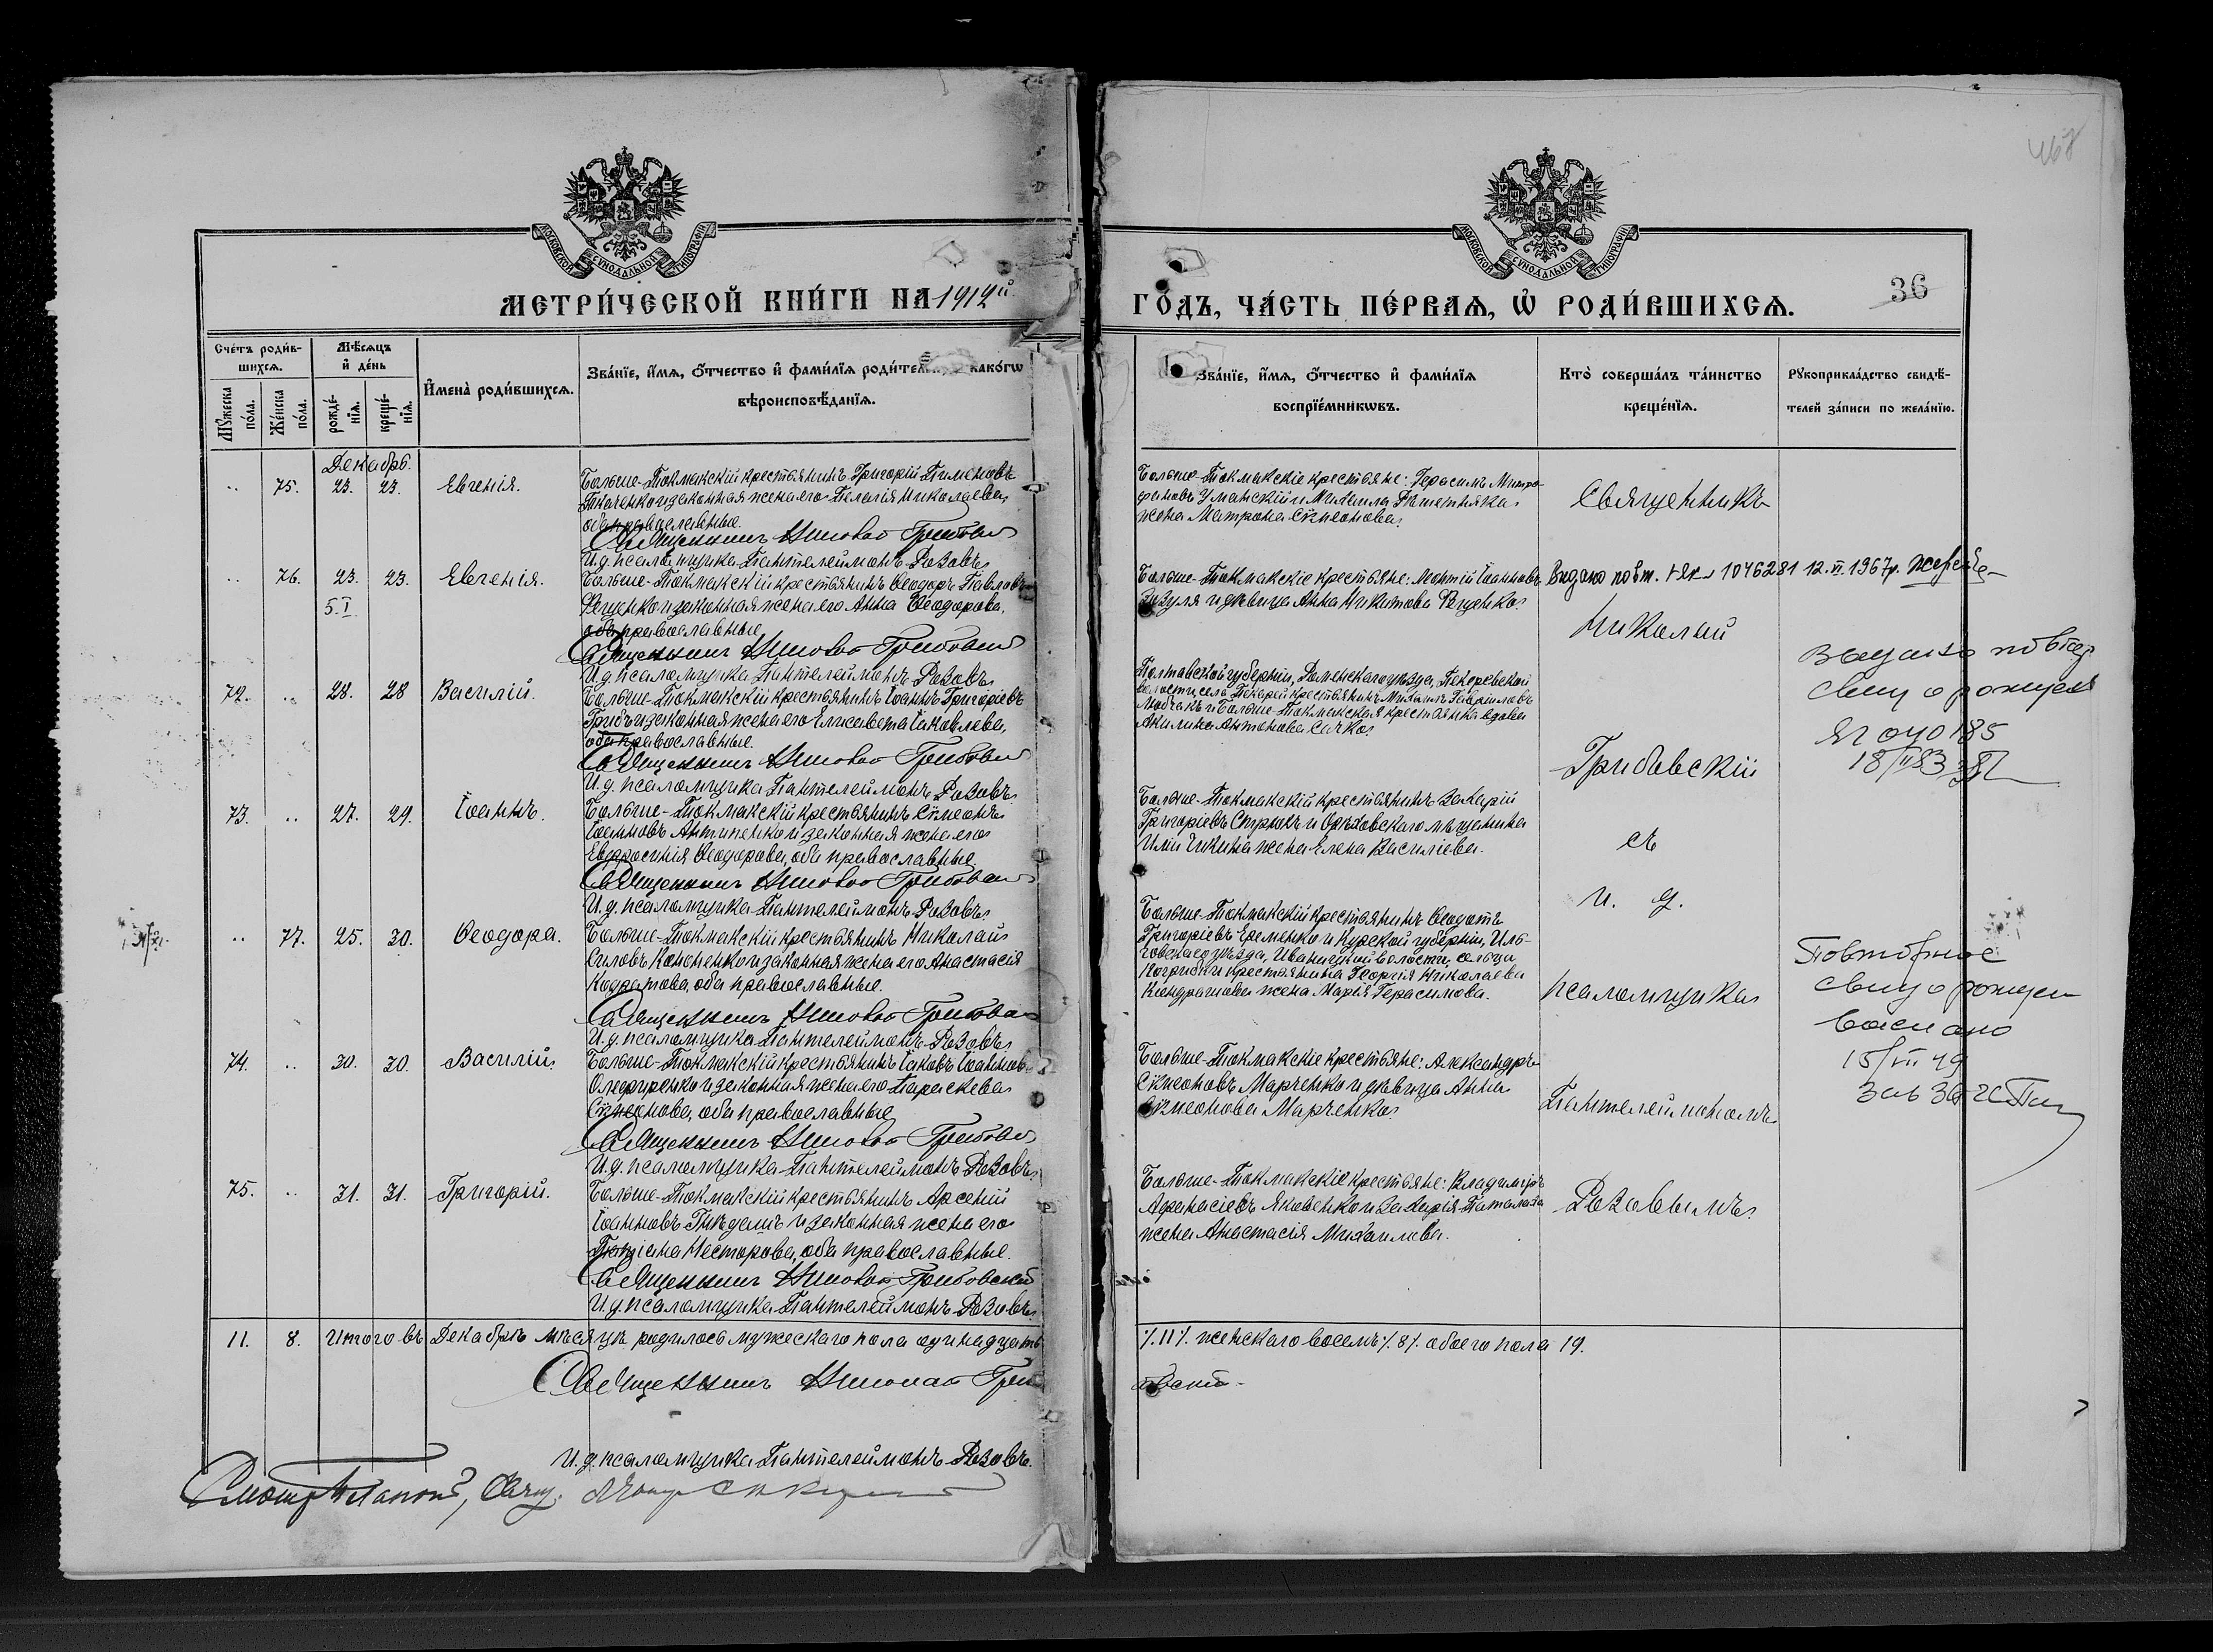 468
МОСКОВСКОЙ СѴНОДАЛЬНОЙ ТИПОГРАФІИ
МОСКОВСКОЙ СѴНОДАЛЬНОЙ ТИПОГРАФІИ
МЕТРИ́ЧЕСКОЙ КНИ́ГИ НА 1912й
ГО́ДЪ, ЧА́СТЬ ПЕ́РВАѦ, Ѡ҆ РОДИ́ВШИХСѦ.
36
Сче́тъ роди́в-
шихсѧ.
Мѣ́сѧцъ
и҆ де́нь
Мꙋ́жеска по́ла.
Же́нска по́ла.
рожде́-
нїѧ.
креще́-
нїѧ.
И҆мена̀ роди́вшихсѧ.
Зва́нїе, и҆́мѧ, ѻ҆́тчество и҆ фами́лїѧ роди́тел како́гѡ
вѣроисповѣ́данїѧ.
Зва́нїе, и҆́мѧ, ѻ҆́тчество и҆ фами́лїѧ
воспрїе́мникѡвъ.
Кто̀ соверша́лъ та́инство
креще́нїѧ.
Рꙋкоприкла́дство свидѣ́-
телей за́писи по жела́нїю.
Декабрь.
.. 75. 23. 23. Евгенія.
Больше-Токмакскій крестьянинъ Григорій Пименовъ
Ткаченко и законная жена его Пелагія Николаева,
оба православные.
Священникъ Николай Грибовс
И.д. псаломщика Пантелеймонъ Розовъ
Больше-Токмакскіе крестьяне: Герасимъ Митро-
фановъ Уманскій и Михаила Решетняка
жена Матрона Сѵмеонова.
Священникъ
.. 76. 23. 23. Евгенія.
5.I
Больше-Токмакскій крестьянинъ Ѳеодоръ Павловъ
Фещенко и законная жена его Анна Ѳеодорова,
оба православные
Священникъ Николай Грибовс
И.д. псаломщика Пантелеймонъ Розовъ
Больше-Токмакскіе крестьяне: Леонтій Іоанновъ
Зозуля и дѣвица Анна Никитова Фещенко.
Видано повт. 1046281 12.VI.1967р.
Николай
72. .. 28. 28 Василій.
Больше-Токмакскій крестьянинъ Іоаннъ Григорьевъ
Грибъ и законная жена его Елисавета Іаковлева,
оба православные.
Священникъ Николай Грибовс
И.д. псаломщика Пантелеймонъ Розовъ
Полтавской губерніи, Роменскаго уѣзда,
волости, села крестьянинъ Михаилъ Гавріиловъ
и Больше-Токмакская крестьянка вдова
Акилина Антонова Сачко.
Грибовскій
Выдано повтор
свид о рожден
ЯГ 040185
18/II 83
73. .. 27. 29. Іоаннъ.
Больше-Токмакскій крестьянинъ Сѵмеонъ
Іоанновъ Антипенко и законная жена его
Евфросинія Ѳеодорова, оба православные.
Священникъ Николай Грибовс
И.д. псаломщика Пантелеймонъ Розовъ
Больше-Токмакскій крестьянинъ Захарій
Григоріевъ Стрюкъ и Орѣховскаго мѣщанина
Иліи Чикина жена Елена Василіева.
съ
и. д.
.. 77. 25. 30. Ѳеодора.
Больше-Токмакскій крестьянинъ Николай
Силовъ Кононенко и законная жена его Анастасія
Кодратова, оба православные.
Священникъ Николай Грибовс
И.д. псаломщика Пантелеймонъ Розовъ
Больше-Токмакскій крестьянинъ Ѳеодотъ
Григоріевъ Еременко и Курской губерніи, Иль-
говскаго уѣзда, Иваницкой волости, сельца
крестьянина Георгія Николаева
Кондрашова жена Марія Герасимова.
псаломщика
Повторное
свид о рожден
выслано
15/VII 49
74. .. 30. 30. Василій
Больше-Токмакскій крестьянинъ Іаковъ Іоанновъ
Олефиренко и законная жена его Параскева
Сѵмеонова, оба православные
Священникъ Николай Грибовс
И.д. псаломщика Пантелеймонъ Розовъ
Больше-Токмакскіе крестьяне: Александръ
Сѵмеоновъ Марченко и дѣвица Анна
Сѵмеонова Марченко.
Пантелеймономъ
75. .. 31. 31. Григорій.
Больше-Токмакскій крестьянинъ Арсеній
Іоанновъ Гнѣдашъ и законная жена его
Татіана Несторова, оба православные.
Священникъ Николай Грибовскій
И.д. псаломщика Пантелеймонъ Розовъ
Больше-Токмакскіе крестьяне: Владиміръ
Афанасіевъ Яковенко и Захарія Паталаха
жена Анастасія Михаилова.
Розовымъ.
11. 8. Итого въ Декабрѣ мѣсяцѣ родилось мужескаго пола одинадцать
/.11/. женскаго восемь /.8/. обоего пола 19.
Священникъ Николай Гриб
овскій
И.д. псаломщика Пантелеймонъ Розовъ.